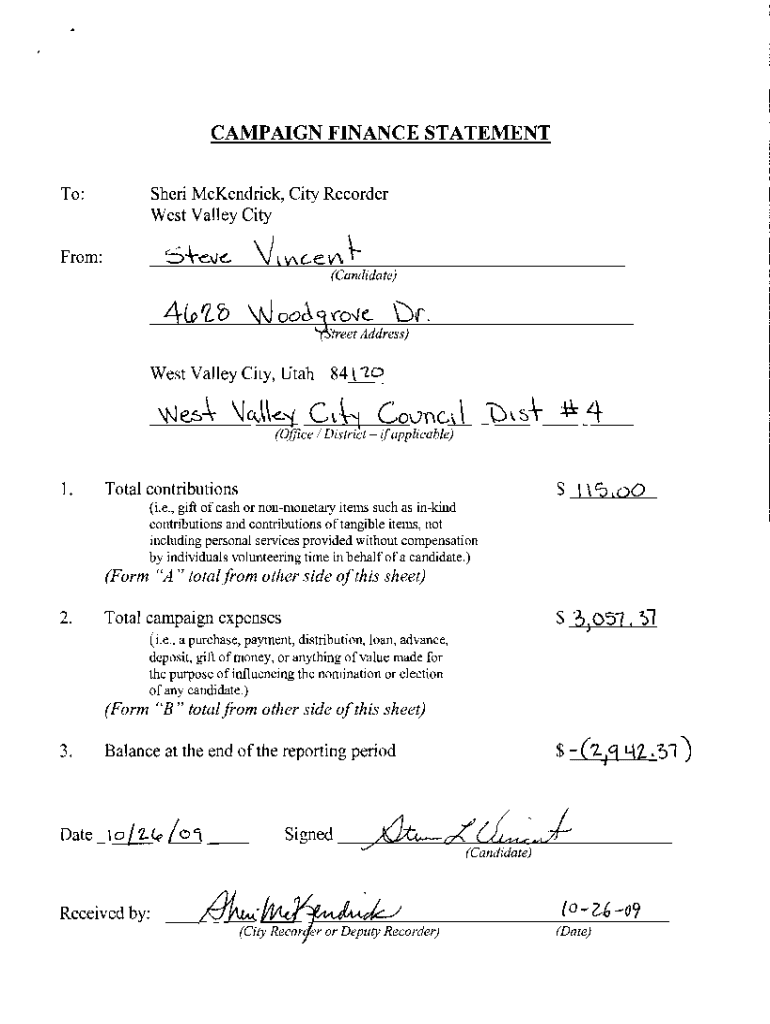 CAMPAIGN FINANCE STATEMENT
To: Sheri McKendrick, City Recorder
West Valley City
From: Steve Vincent
(Candidate)
4628 Woodgrove Dr.
(Street Address)
West Valley City, Utah 84120
West Valley City Council Dist #4
(Office / District – if applicable)
1. Total contributions $ 115.00
(i.e., gift of cash or non-monetary items such as in-kind
contributions and contributions of tangible items, not
including personal services provided without compensation
by individuals volunteering time in behalf of a candidate.)
(Form "A" total from other side of this sheet)
2. Total campaign expenses $ 3,057.37
(i.e., a purchase, payment, distribution, loan, advance,
deposit, gift of money, or anything of value made for
the purpose of influencing the nomination or election
of any candidate.)
(Form "B" total from other side of this sheet)
3. Balance at the end of the reporting period $ -(2,942.37)
Date 10/26/09 Signed Steven L Vincent
(Candidate)
Received by: Sheri McKendrick 10-26-09
(City Recorder or Deputy Recorder) (Date)